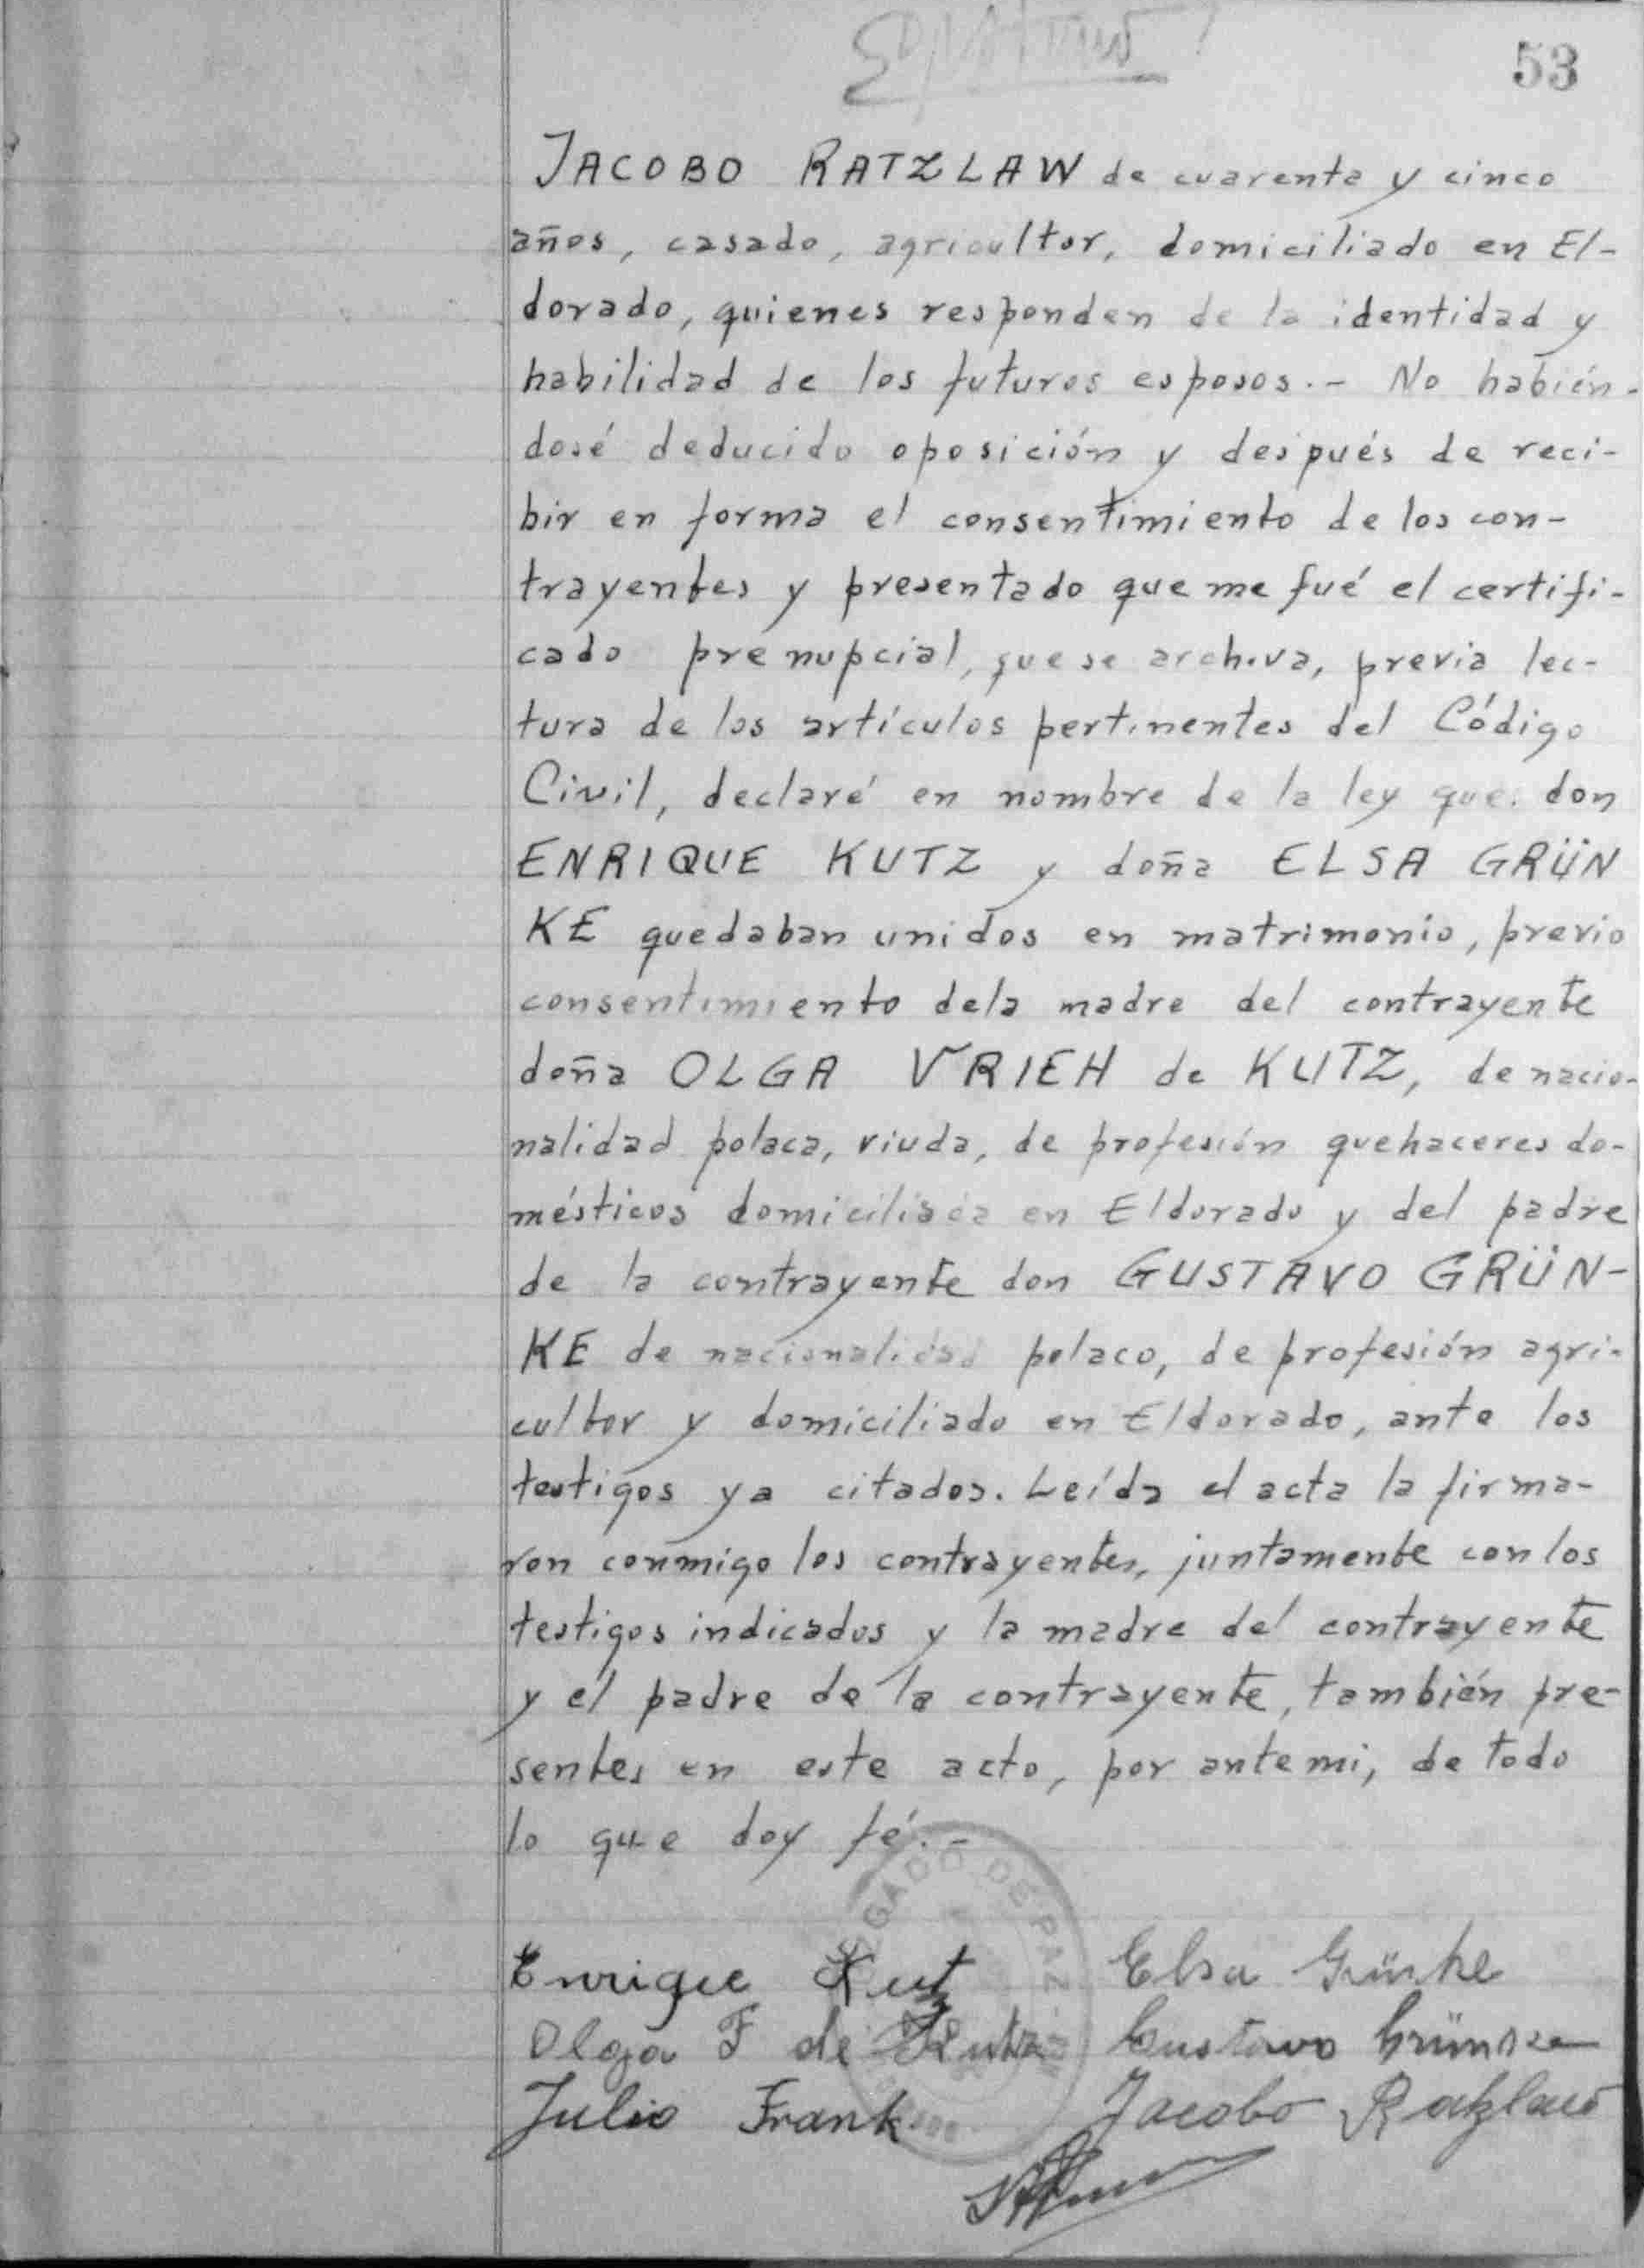 53
JACOBO RATZLAW de cuarenta y cinco
años, casado, agricultor, domiciliado en El-
dorado, quienes responden de la identidad y
habilidad de los futuros esposos.- No habién-
dosé deducido oposición y después de reci-
bir en forma el consentimiento de los con-
trayentes y presentado que me fué el certifi-
cado prenupcial, que se archiva, previa lec-
tura de los artículos pertinentes del Código
Civil, declaré en nombre de la ley que don
ENRIQUE KUTZ y doña ELSA GRÜN
KE quedaban unidos en matrimonio, previo
consentimiento dela madre del contrayente
doña OLGA VRIEH de KUTZ, de nacio-
nalidad polaca, viuda, de profesión quehaceres do-
mésticos domiciliada en Eldorado y del padre
de la contrayente don GUSTAVO GRÜN-
KE de nacionalidad polaco, de profesión agri-
cultor y domiciliado en Eldorado, ante los
testigos ya citados. Leída el acta la firma-
ron conmigo los contrayentes, juntamente con los
testigos indicados y la madre del contrayente
y el padre de la contrayente, también pre-
sentes en este acto, por ante mi, de todo
lo que doy fé.-
Enrique Kutz Elsa Grünke
Olga F de Kutz Gustavo
Julio Frank Jacobo Ratzlaw
DE PAZ